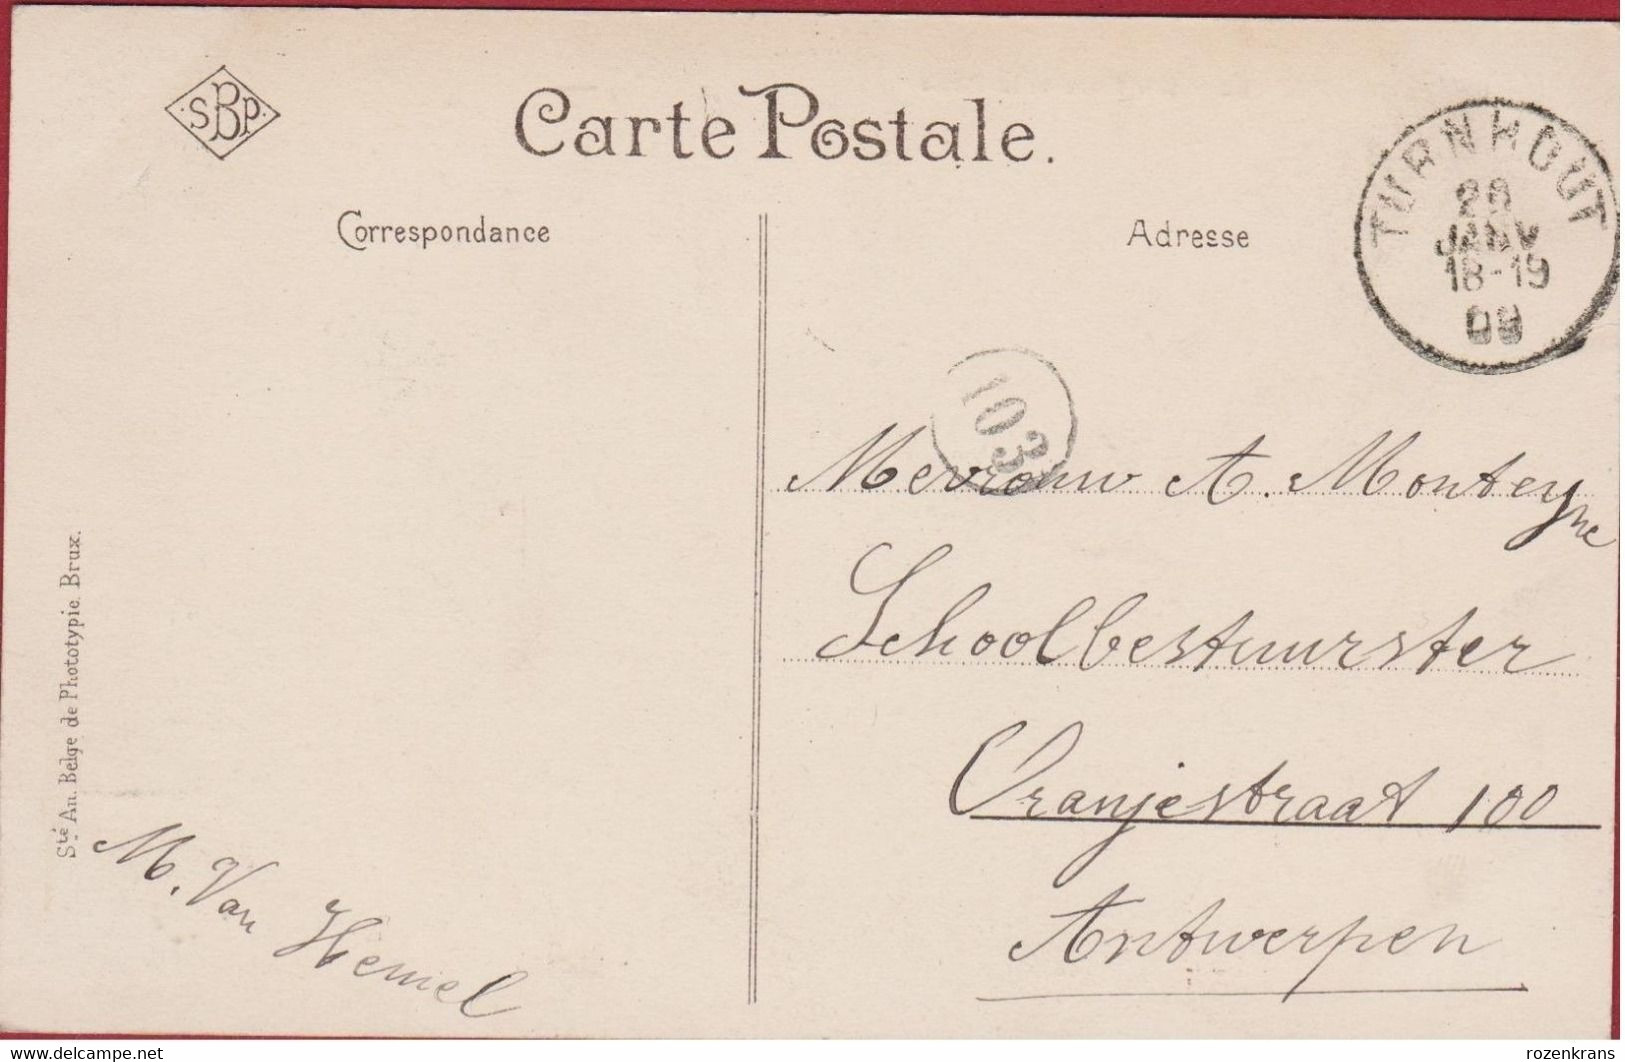 SBP
Carte Postale.
Correspondance
Adresse
TURNHOUT
28
JANV
18-19
09
103
Mevrouw A. Monteyne
Schoolbestuurster
Oranjestraat 100
Antwerpen
M. Van Hemel
Sté An. Belge de Phototypie. Brux.
delcampe.net
rozenkrans